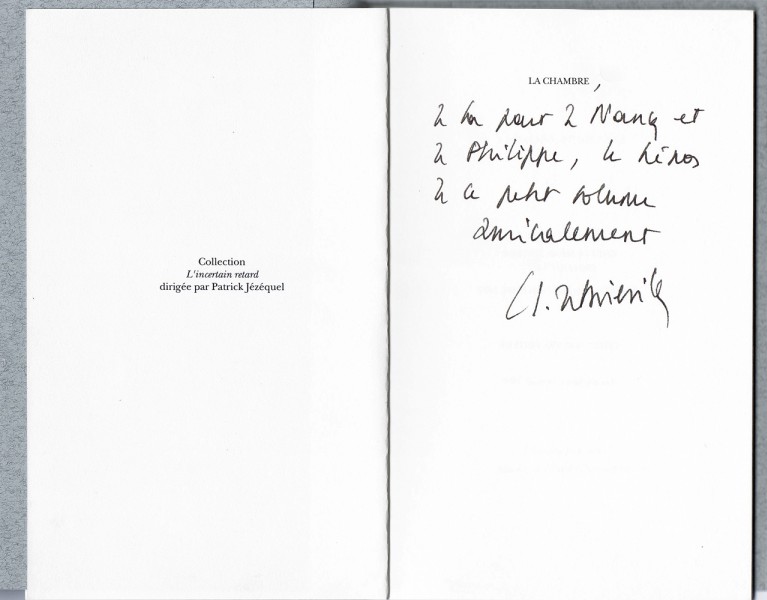 Collection
L'incertain retard
dirigée par Patrick Jézéquel
LA CHAMBRE,
Nancy et
de Philippe, le héros
de ce petit volume
amicalement
Cl.